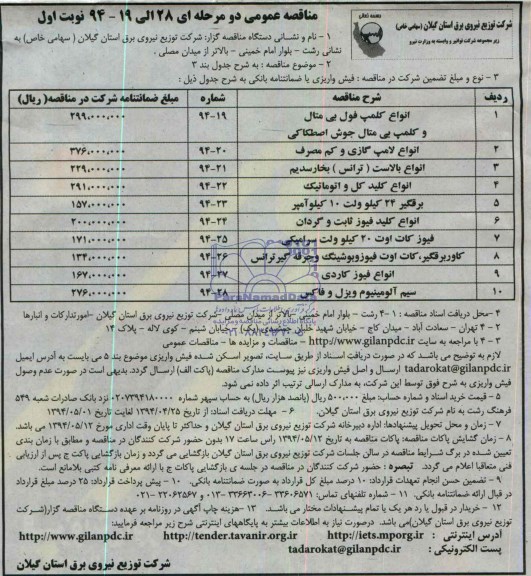 شرکت توزیع نیروی برق استان گیلان (سهامی خاص)
زیر مجموعه شرکت توانیر و وابسته به وزارت نیرو
مناقصه عمومی دو مرحله ای ۲۸ الی ۱۹ - ۹۴ نوبت اول
۱ - نام و نشانی دستگاه مناقصه گزار: شرکت توزیع نیروی برق استان گیلان ( سهامی خاص) به
نشانی رشت - بلوار امام خمینی - بالاتر از میدان مصلی .
۲ - موضوع مناقصه : به شرح جدول بند ۳
۳ - نوع و مبلغ تضمین شرکت در مناقصه : فیش واریزی یا ضمانتنامه بانکی به شرح جدول ذیل :
ردیف شرح مناقصه شماره مبلغ ضمانتنامه شرکت در مناقصه( ریال)
۱ انواع کلمپ فول بی متال و کلمپ بی متال جوش اصطکاکی ۹۴-۱۹ ۲۹۹,۰۰۰,۰۰۰
۲ انواع لامپ گازی و کم مصرف ۹۴-۲۰ ۳۷۶,۰۰۰,۰۰۰
۳ انواع بالاست ( ترانس ) بخارسدیم ۹۴-۲۱ ۲۲۹,۰۰۰,۰۰۰
۴ انواع کلید کل و اتوماتیک ۹۴-۲۲ ۲۹۱,۰۰۰,۰۰۰
۵ برقگیر ۲۴ کیلو ولت ۱۰ کیلوآمپر ۹۴-۲۳ ۱۵۷,۰۰۰,۰۰۰
۶ انواع کلید فیوز ثابت و گردان ۹۴-۲۴ ۲۰۰,۰۰۰,۰۰۰
۷ فیوز کات اوت ۲۰ کیلو ولت سرامیکی ۹۴-۲۵ ۱۷۱,۰۰۰,۰۰۰
۸ کاوربرقگیر،کات اوت فیوزوبوشینگ وجرقه گیرترانس ۹۴-۲۶ ۱۳۴,۰۰۰,۰۰۰
۹ انواع فیوز کاردی ۹۴-۲۷ ۱۶۷,۰۰۰,۰۰۰
۱۰ سیم آلومینیوم ویزل و فاکس ۹۴-۲۸ ۲۷۶,۰۰۰,۰۰۰
ParsNamadData
۴ - محل دریافت اسناد مناقصه : ۱ - ۴ رشت - بلوار امام خمینی - بالاتر از میدان مصلی - شرکت توزیع نیروی برق استان گیلان - امورتدارکات و انبارها
۲ - ۴ تهران - سعادت آباد - میدان کاج - خیابان شهید خلیل - خیابان شبنم - کوی لاله - پلاک ۱۴
۳ - ۴ با مراجعه به سایت http://www.gilanpdc.ir - مناقصات و مزایده ها - مناقصات عمومی
لازم به توضیح می باشد که در صورت دریافت اسناد از طریق سایت، تصویر اسکن شده فیش واریزی موضوع بند ۵ می بایست به آدرس ایمیل
tadarokat@gilanpdc.ir ارسال و اصل فیش واریزی نیز پیوست مدارک مناقصه (پاکت الف) ارسال گردد. بدیهی است در صورت عدم وصول
فیش واریزی به شرح فوق توسط این شرکت، به مدارک ارسالی ترتیب اثر داده نمی شود.
۵ - قیمت خرید اسناد و شماره حساب: مبلغ ۵۰۰,۰۰۰ ریال (پانصد هزار ریال) به حساب سپهر شماره ۰۲۰۷۳۹۴۱۸۰۰۰۰ نزد بانک صادرات شعبه ۵۴۹
فرهنگ رشت به نام شرکت توزیع نیروی برق استان گیلان. ۶ - مهلت دریافت اسناد: از تاریخ ۱۳۹۴/۰۴/۲۵ لغایت تاریخ ۱۳۹۴/۰۵/۰۱
۷ - زمان و محل تحویل پیشنهادها: اداره دبیرخانه شرکت توزیع نیروی برق استان گیلان و حداکثر تا پایان وقت اداری مورخ ۱۳۹۴/۰۵/۱۲ می باشد.
۸ - زمان گشایش پاکات مناقصه: پاکات مناقصه به تاریخ ۱۳۹۴/۰۵/۱۳ راس ساعت ۱۷ بدون حضور شرکت کنندگان در مناقصه و مطابق با زمان بندی
تعیین شده در برگ شرایط مناقصه در سالن جلسات شرکت توزیع نیروی برق استان گیلان بازگشایی می گردد و زمان بازگشایی پاکت ج پس از ارزیابی
فنی متعاقبا اعلام می گردد. تبصره : حضور شرکت کنندگان در مناقصه در جلسه ی بازگشایی پاکات ج با ارائه معرفی نامه کتبی بلامانع است.
۹ - تضمین حسن انجام تعهدات قرارداد: ۱۰ درصد مبلغ کل قرارداد به صورت ضمانتنامه بانکی. ۱۰ - پیش پرداخت قرارداد: ۲۵ درصد مبلغ قرارداد
در قبال ارائه ضمانتنامه بانکی. ۱۱ - شماره تلفنهای تماس: ۳۳۶۰۶۵۷۱ - ۳۳۶۶۳۰۰۶-۰۱۳ و ۲۲۰۶۲۵۶۷-۰۲۱
۱۲ - خریدار در قبول یا رد هر یک یا تمام پیشنهادات مختار می باشد. ۱۳ -هزینه چاپ آگهی در روزنامه بر عهده دستگاه مناقصه گزار(شرکت
توزیع نیروی برق استان گیلان)می باشد. درصورت نیاز به اطلاعات بیشتر به پایگاههای اینترنتی شرح زیر مراجعه فرمایید:
آدرس اینترنتی : http://iets.mporg.ir http://tender.tavanir.org.ir http://www.gilanpdc.ir
پست الکترونیکی : tadarokat@gilanpdc.ir
شرکت توزیع نیروی برق استان گیلان